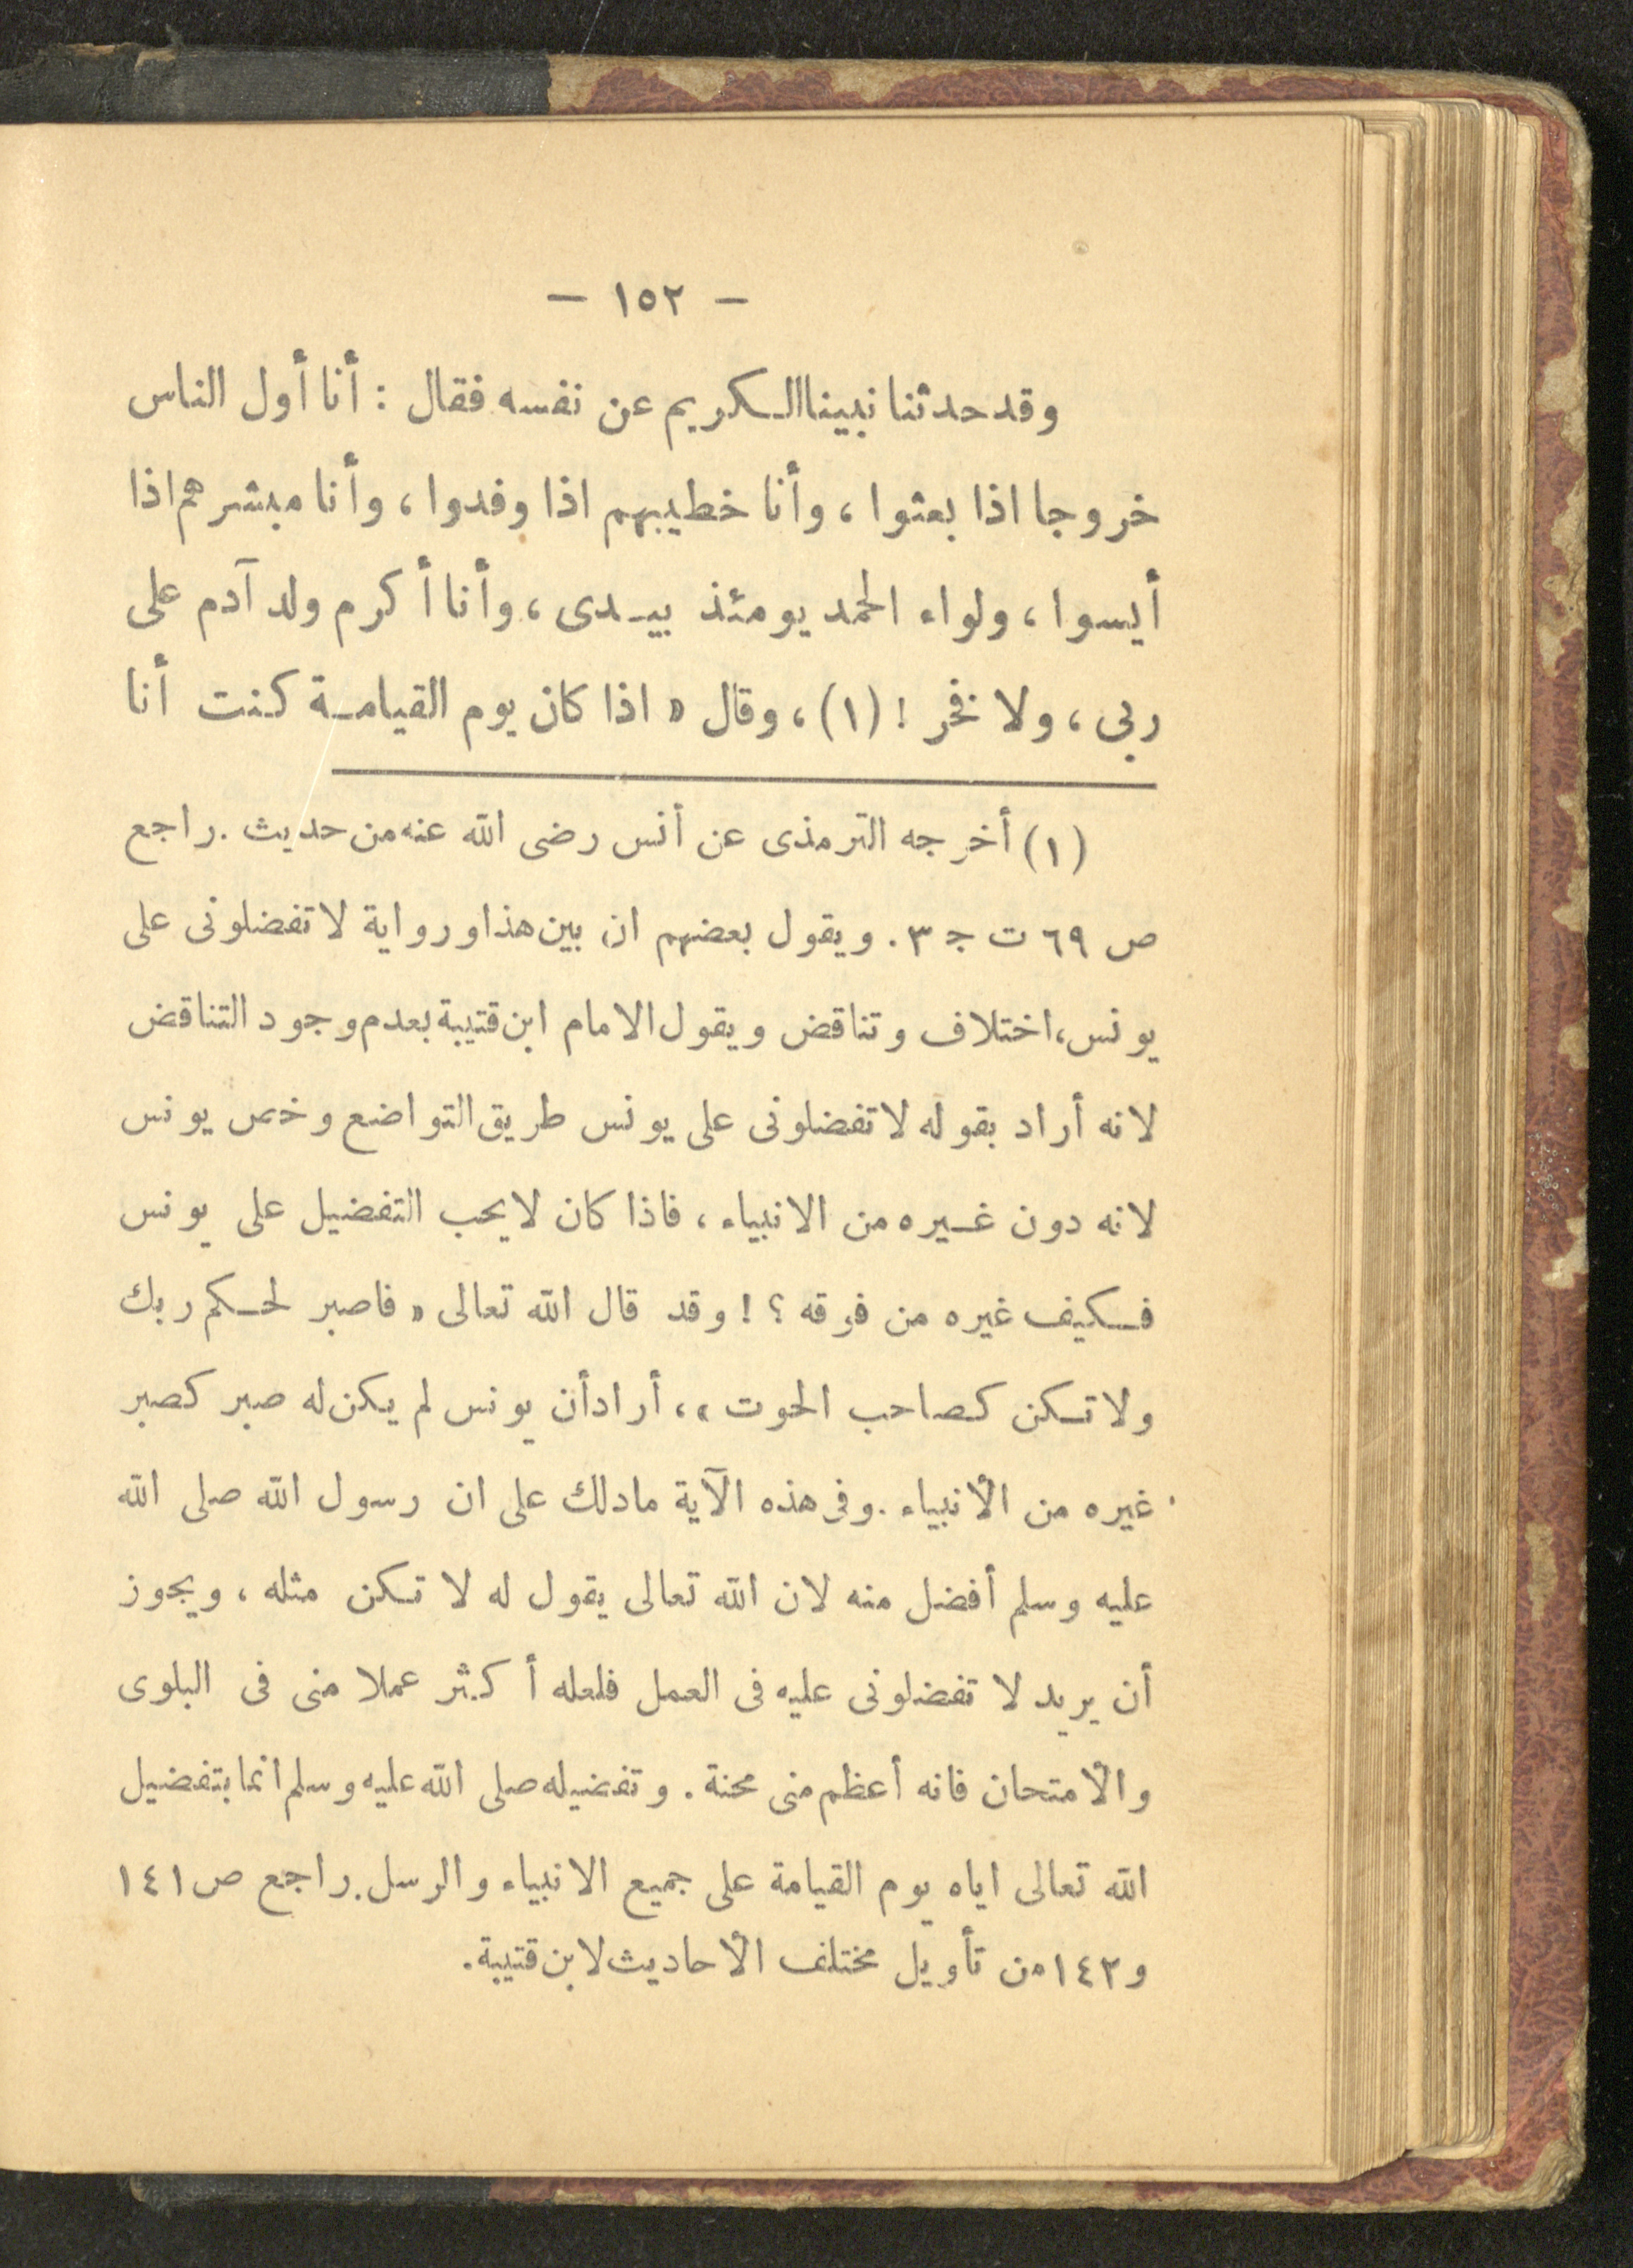 — ١٥٢ —
وقد حدثنا نبينا الكريم عن نفسه فقال : أنا أول الناس
خروجا اذا بعثوا ، وأنا خطيبهم اذا وفدوا ، وأنا مبشرهم اذا
أيسوا ، ولواء الحمد يومئذ بيـدى ، وأنا أكرم ولد آدم على
ربى ، ولا فخر ! (١) ، وقال « اذا كان يوم القيامـة كنت أنا
(١) أخرجه الترمذى عن أنس رضى الله عنه من حديث . راجع
ص ٦٩ ت ج ٣ . ويقول بعضهم ان بين هذا ورواية لا تفضلونى على
يونس، اختلاف وتناقض ويقول الامام ابن قتيبة بعدم وجود التناقض
لانه أراد بقوله لا تفضلونى على يونس طريق التواضع وخص يونس
لانه دون غـيره من الانبياء ، فاذا كان لا يحب التفضيل على يونس
فـكيف غيره من فرقه ؟ ! وقد قال الله تعالى « فاصبر لحـكم ربك
ولا تـكن كصاحب الحوت » ، أراد أن يونس لم يكن له صبر كصبر
غيره من الأنبياء . وفى هذه الآية مادلك على ان رسول الله صلى الله
عليه وسلم أفضل منه لان الله تعالى يقول له لا تكن مثله ، ويجوز
أن يريد لا تفضلونى عليه فى العمل فلعله أكثر عملا منى فى البلوى
والأمتحان فانه أعظم منى محنة . وتفضيله صلى الله عليه وسلم انما بتفضيل
الله تعالى اياه يوم القيامة على جميع الانبياء والرسل . راجع ص ١٤١
و١٤٢ من تأويل مختلف الأحاديث لابن قتيبة .